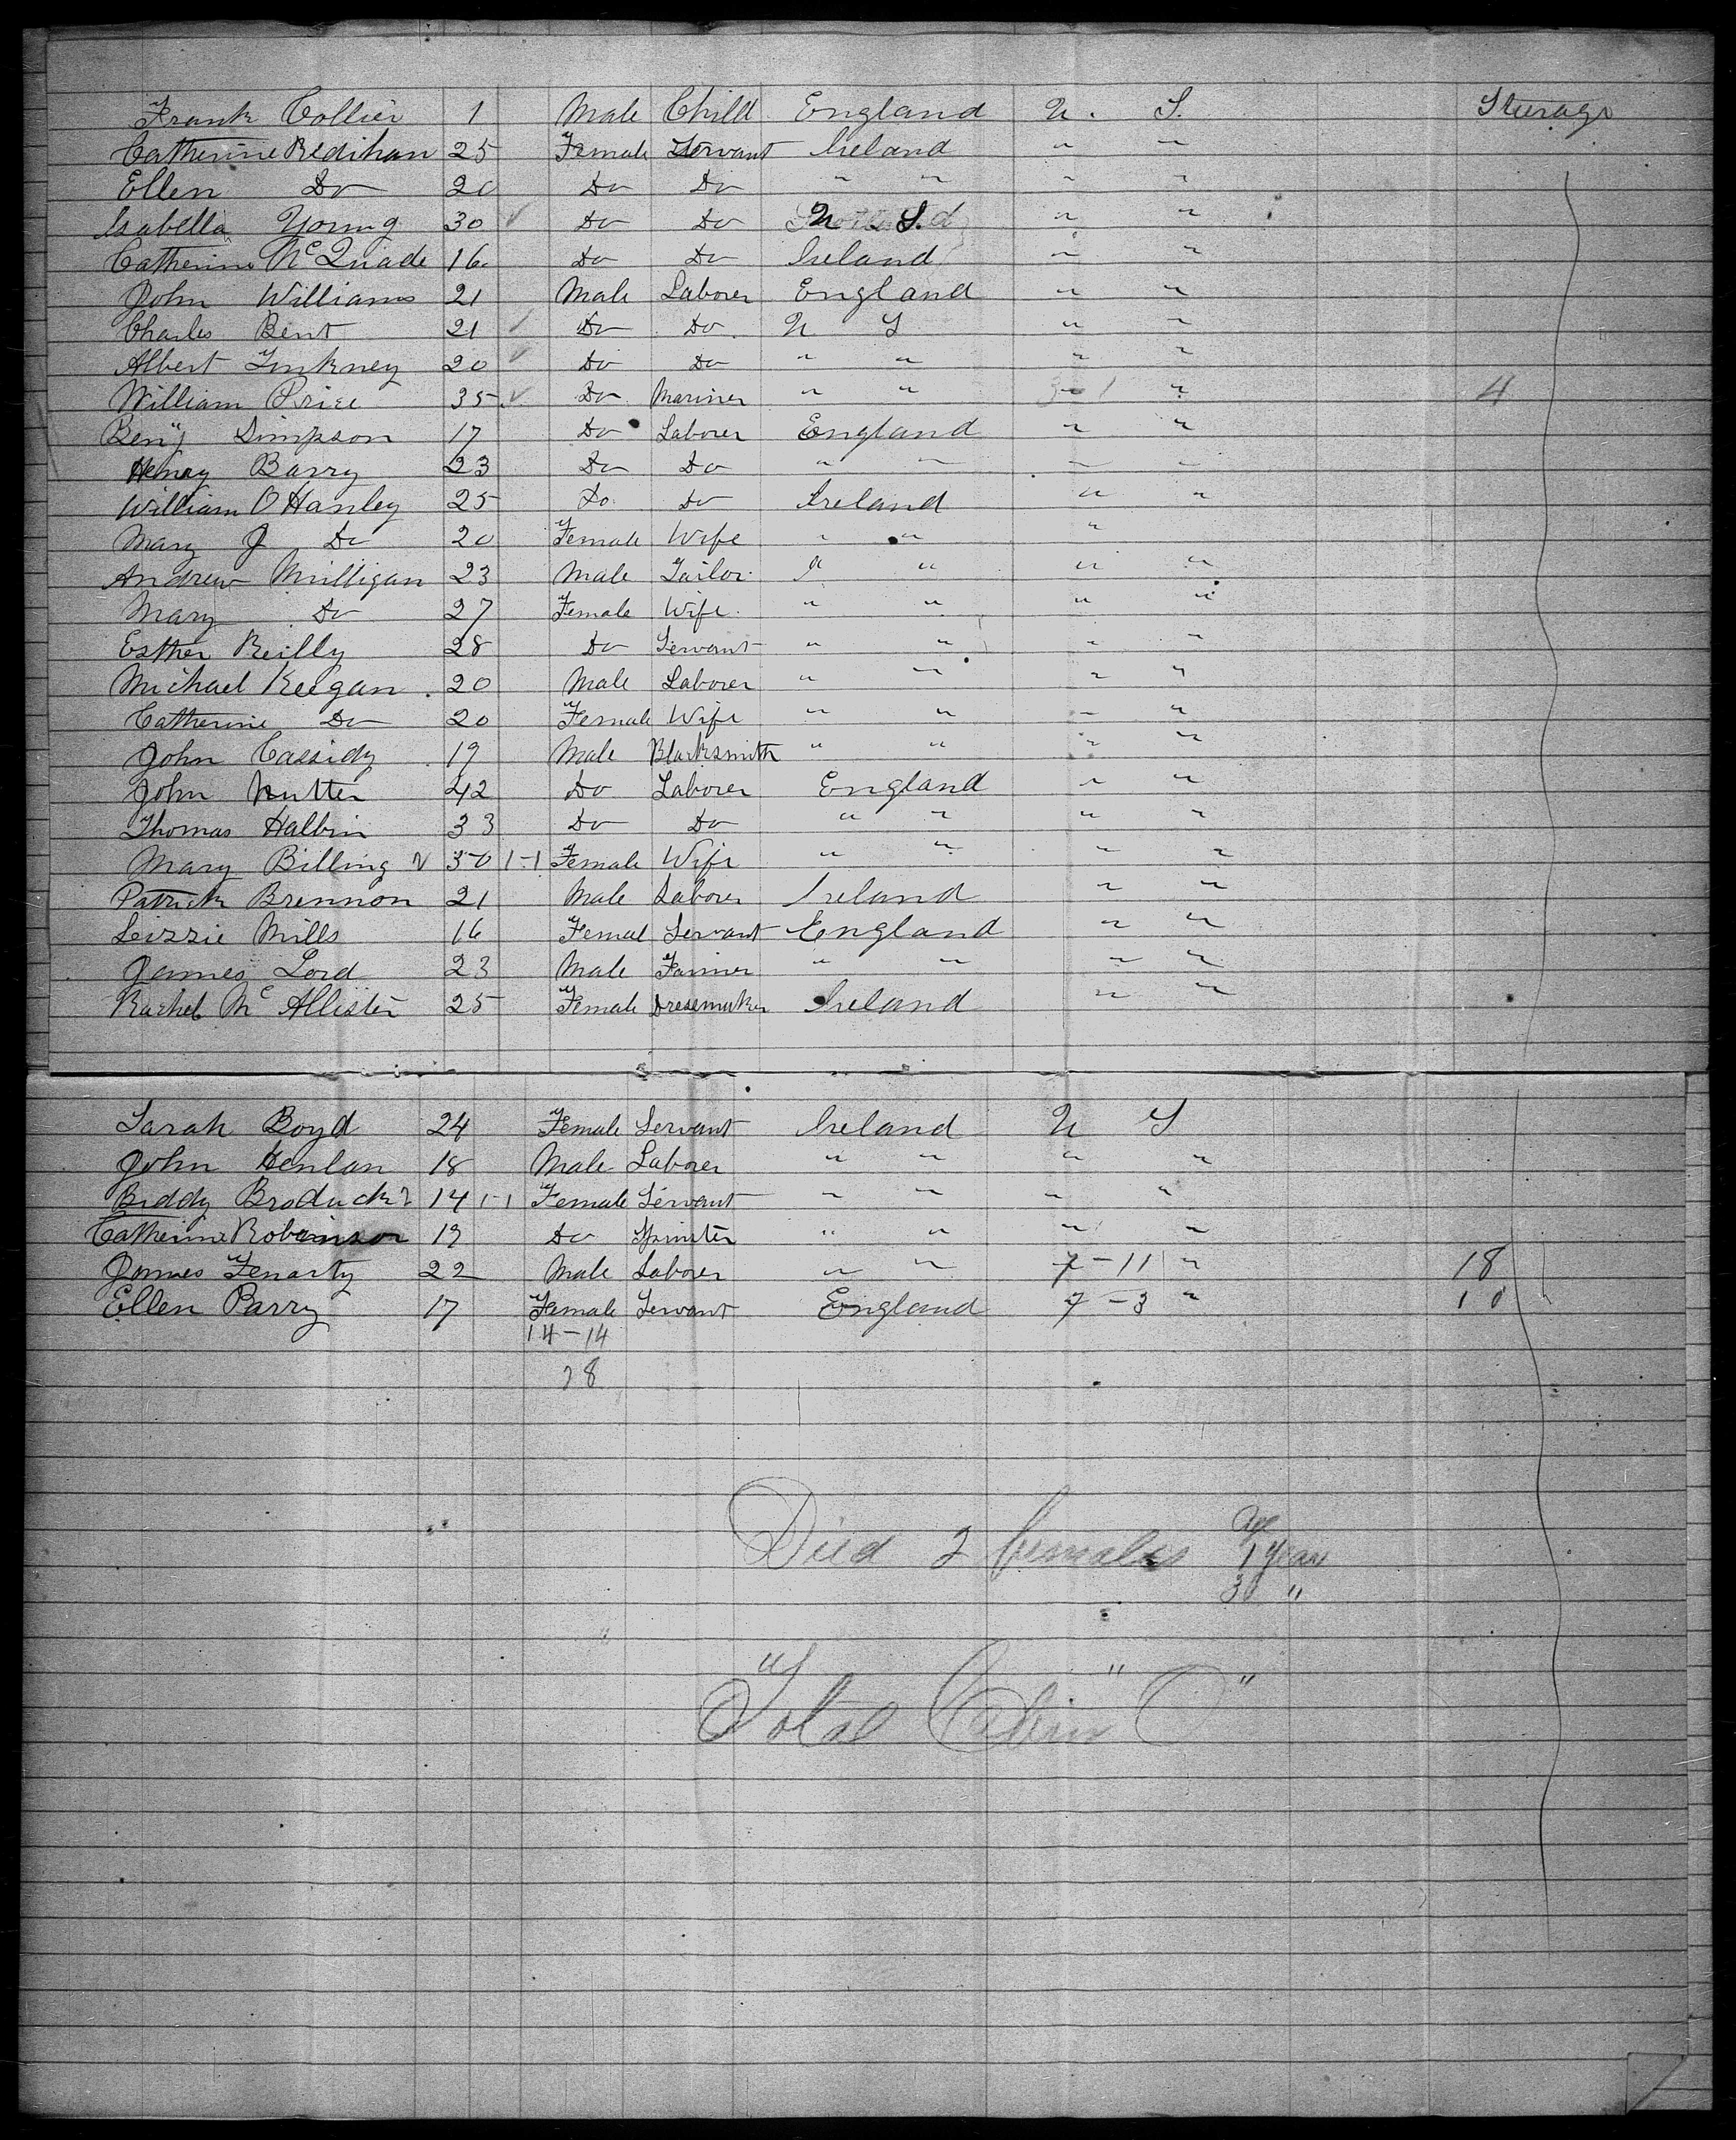 Frank Collier 1 Male Child England U. S. Sturage
Catherine Redihan 25 Female Servant Ireland " "
Ellen Do 20 Do Do " " " "
Isabella Young 30 ✓ Do Do U S. " "
Catherine McQuade 16 Do Do Ireland " "
John Williams 21 Male Laborer England " "
Charles Bent 21 ✓ Do Do U S " "
Albert 20 ✓ Do Do " " " "
William Price 35 ✓ Do Mariner " " 3-1 " 4
Benj Simpson 17 Do Laborer England " "
Henry Barry 23 Do Do " " " "
William O Hanley 25 Do Do Ireland " "
Mary J Do 20 Female Wife " " "
Andrew Milligan 23 Male Tailor " " " "
Mary Do 27 Female Wife " " " "
Esther Reilly 28 Do Servant " " " "
Michael Keegan 20 Male Laborer " " " "
Catherine Do 20 Female Wife " " " "
John Cassidy 19 Male Blacksmith " " " "
John Nutter 42 Do Laborer England " "
Thomas Halbin 33 Do Do " " " "
Mary Billing 30 1-1 Female Wife " " " "
Patrick Brennon 21 Male Laborer Ireland " "
Lizzie Mills 16 Femal Servant England " "
James Lord 23 Male Farmer " " " "
Rachel Mc Allister 25 Female Dressmaker Ireland " "
Sarah Boyd 24 Female Servant Ireland U S
John Henlan 18 Male Laborer " " " "
Biddy Broduck 14 1-1 Female Servant " " " "
Catherine Robinson 19 Do Spinster " " " "
James Fenarty 22 Male Laborer " " 7-11 " 18
Ellen Parry 17 Female Servant England 7-3 " 10
14-14
28
Died 2 females Age 1 year
30 "
"Total Cabin" O"